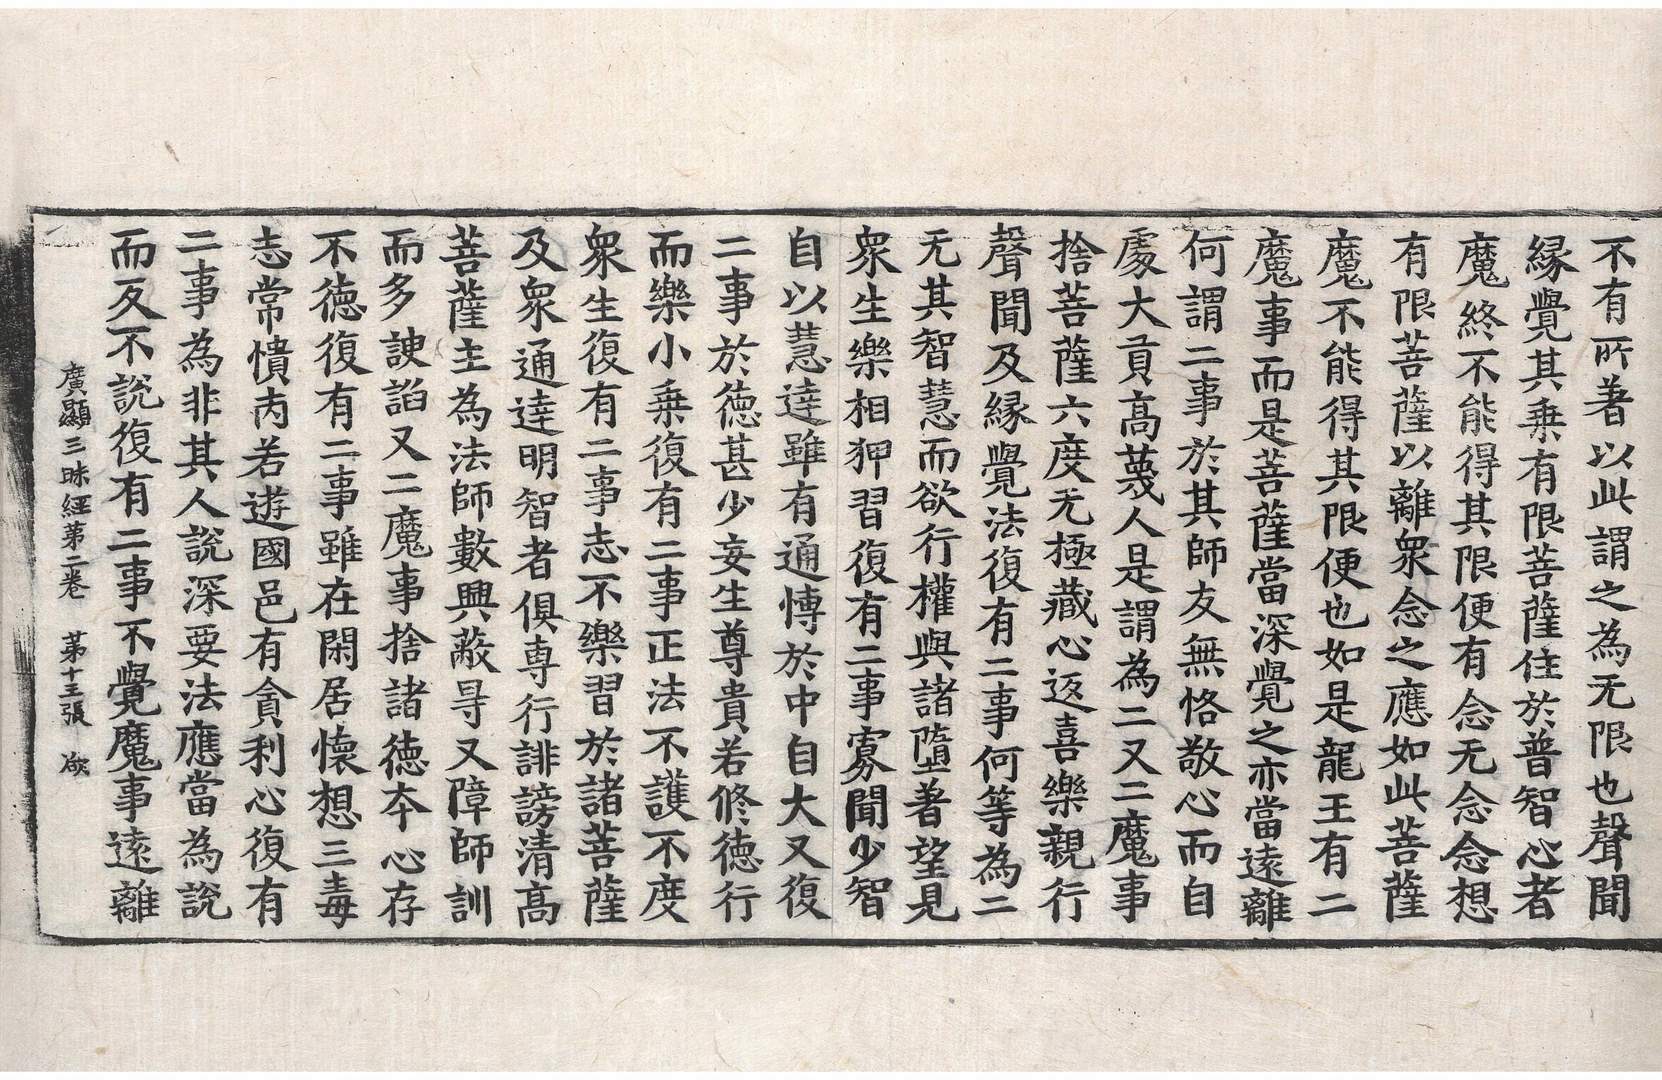 不有所著以此謂之為无限也聲聞
緣覺其乘有限菩薩住於普智心者
魔終不能得其限便有念无念念想
有限菩薩以離衆念之應如此菩薩
魔不能得其限便也如是龍王有二
魔事而是菩薩當深覺之亦當遠離
何謂二事於其師友無恪敬心而自
處大貢高蔑人是謂為二又二魔事
捨菩薩六度无極藏心返喜樂親行
聲聞及緣覺法復有二事何等為二
无其智慧而欲行權與諸墮著望見
衆生樂相狎習復有二事寡聞少智
自以慧達雖有通慱於中自大又復
二事於德甚少妄生尊貴若修德行
而樂小乗復有二事正法不護不度
衆生復有二事志不樂習於諸菩薩
及衆通達明智者俱専行誹謗清高
菩薩主為法師數興蔽㝵又障師訓
而多諛諂又二魔事捨諸德夲心存
不德復有二事雖在閑居懷想三毒
志常憒内若遊國邑有貪利心復有
二事為非其人說深要法應當為說
而反不說復有二事不覺魔事遠離
廣顯三昧經第二卷 第十三張 欲